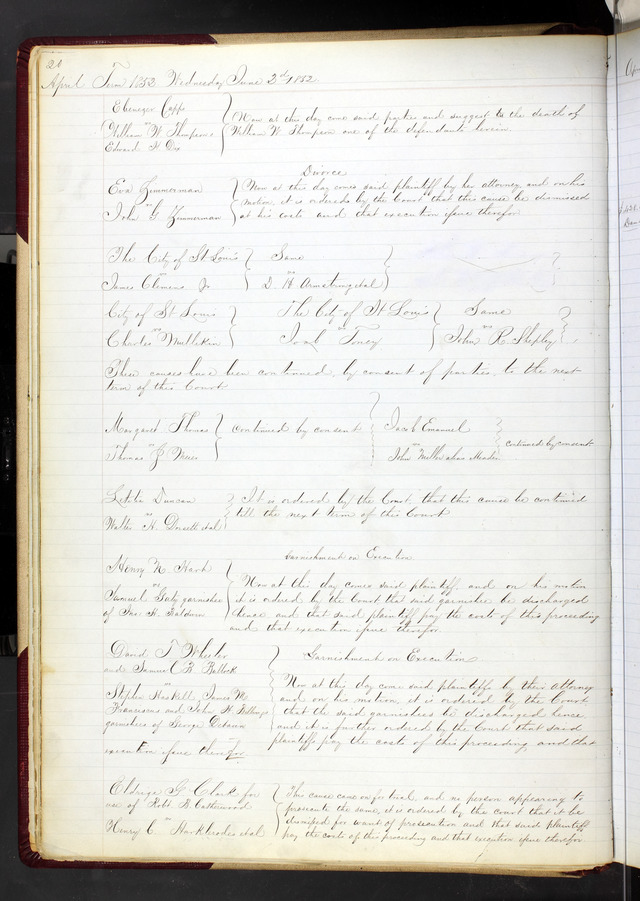 20
April Term 1852. Wednesday June 2d 1852.
Ebenezer Cappe
vs
William W. Thompson &
Edward H. Dix
Now at this day come said parties and suggest to the death of
William W. Thompson one of the defendants herein
Divorce
Eva Zimmerman
vs
John G. Zimmerman
Now at this day comes said plaintiff by her attorney, and on his
motion, it is ordered by the Court that this cause be dismissed
at his costs and that execution issue therefor
The City of St Louis
vs
James Clemens Jr
Same
vs
D H Armstrong et al
City of St Louis
vs
Charles Mullikin
The City of St Louis
vs
Toney
Same
vs
John R. Shepley
These causes have been continued, by consent of parties, to the next
term of this Court
Margaret Thomas
vs
Thomas J. Meier
continued by consent
Jacob Emanuel
vs
John Miller alias
continued by consent
Letitia Duncan
vs
Walter H. Dorsett et al
It is ordered by the Court that this cause be continued
till the next term of this Court
Garnishment on Execution
Henry N. Hart
vs
Samuel Gaty garnishee
of H. Baldwin
Now at this day comes said plaintiff and on his motion
it is ordered by the Court that said garnishee be discharged
hence and that said plaintiff pay the costs of this proceeding
and that execution issue therefor
David T. Wheeler
and Samuel B. Bullock
vs
Stephen Haskell, James M.
Franciscus and John H. Fellings
garnishees of George
Garnishments on Execution
Now at this day come said plaintiffs by their attorney
and on his motion, it is ordered by the Court
that the said garnishees be discharged hence
and it is further ordered by the Court that said
plaintiffs pay the costs of this proceeding and that
execution issue therefor
Eldridge G. Clark for
use of Robt B. Catherwood
vs
Henry C. et al
This cause came on for trial, and no person appearing to
prosecute the same, it is ordered by the court that it be
dismissed for want of prosecution and that said plaintiff
pay the costs of this proceeding and that execution issue therefor